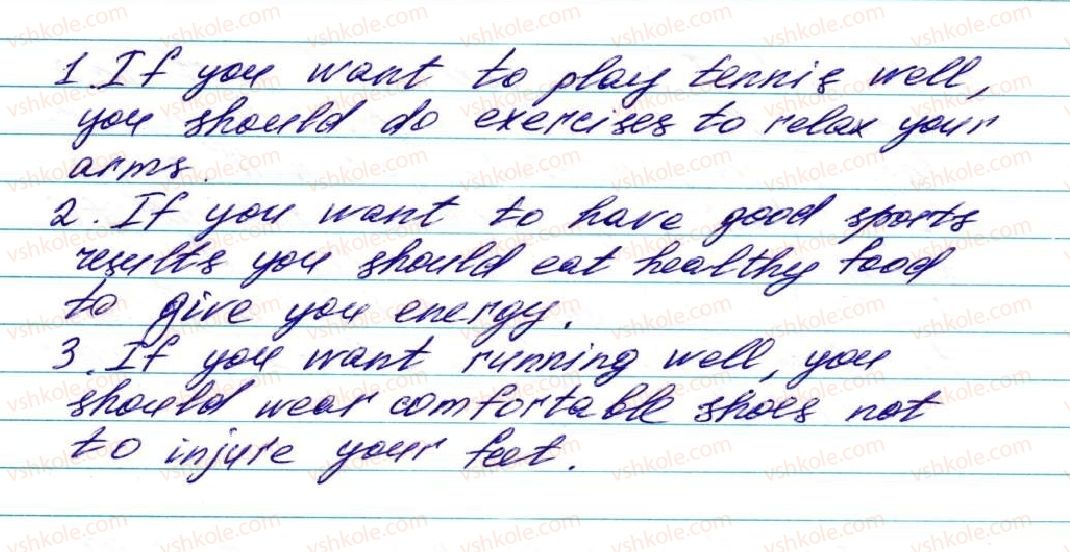 1. If you want to play tennis well,
you should do exercises to relax your
arms.
2. If you want to have good sports
results you should eat healthy food
to give you energy.
3. If you want running well, you
should wear comfortable shoes not
to injure your feet.